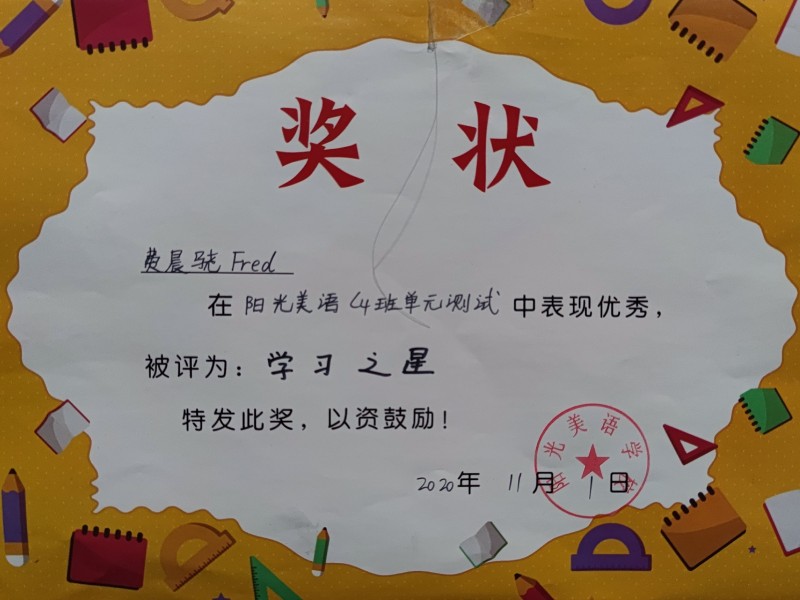 奖状
费晨骁 Fred
在 阳光美语 L4班单元测试 中表现优秀，
被评为：学习之星
特发此奖，以资鼓励！
2020年 11月 1日
阳光美语学校